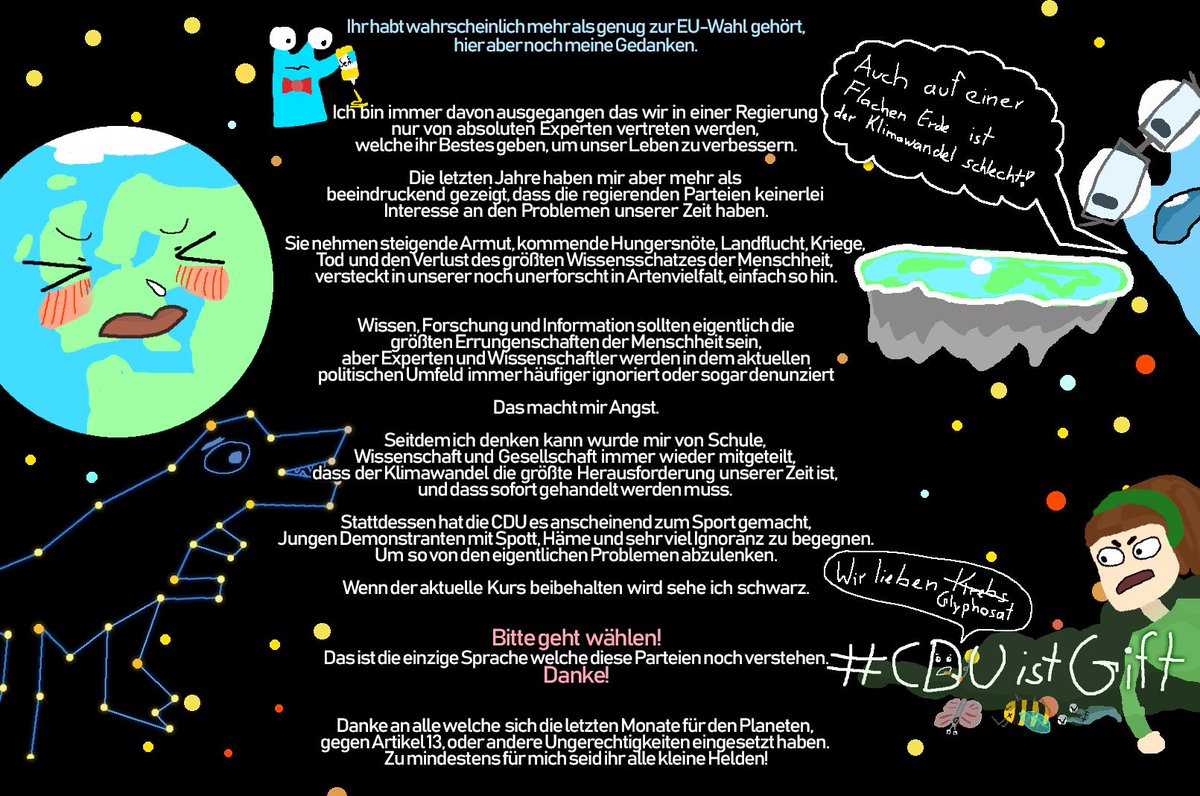 Ihr habt wahrscheinlich mehr als genug zur EU-Wahl gehört,
hier aber noch meine Gedanken.
Senf
Ich bin immer davon ausgegangen das wir in einer Regierung
nur von absoluten Experten vertreten werden,
welche ihr Bestes geben, um unser Leben zu verbessern.
Die letzten Jahre haben mir aber mehr als
beeindruckend gezeigt, dass die regierenden Parteien keinerlei
Interesse an den Problemen unserer Zeit haben.
Sie nehmen steigende Armut, kommende Hungersnöte, Landflucht, Kriege,
Tod und den Verlust des größten Wissensschatzes der Menschheit,
versteckt in unserer noch unerforscht in Artenvielfalt, einfach so hin.
Wissen, Forschung und Information sollten eigentlich die
größten Errungenschaften der Menschheit sein,
aber Experten und Wissenschaftler werden in dem aktuellen
politischen Umfeld immer häufiger ignoriert oder sogar denunziert
Das macht mir Angst.
Seitdem ich denken kann wurde mir von Schule,
Wissenschaft und Gesellschaft immer wieder mitgeteilt,
dass der Klimawandel die größte Herausforderung unserer Zeit ist,
und dass sofort gehandelt werden muss.
Stattdessen hat die CDU es anscheinend zum Sport gemacht,
Jungen Demonstranten mit Spott, Häme und sehr viel Ignoranz zu begegnen.
Um so von den eigentlichen Problemen abzulenken.
Wenn der aktuelle Kurs beibehalten wird sehe ich schwarz.
Bitte geht wählen!
Das ist die einzige Sprache welche diese Parteien noch verstehen.
Danke!
Danke an alle welche sich die letzten Monate für den Planeten,
gegen Artikel 13, oder andere Ungerechtigkeiten eingesetzt haben.
Zu mindestens für mich seid ihr alle kleine Helden!
Auch auf einer
Flachen Erde ist
der Klimawandel schlecht!
Wir lieben Krebs
Glyphosat
#CDU ist Gift